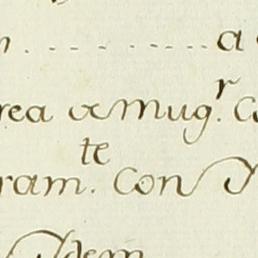 n . . . . . . . . . . . a
rea & mug.r C
te
ram. Con
Idem